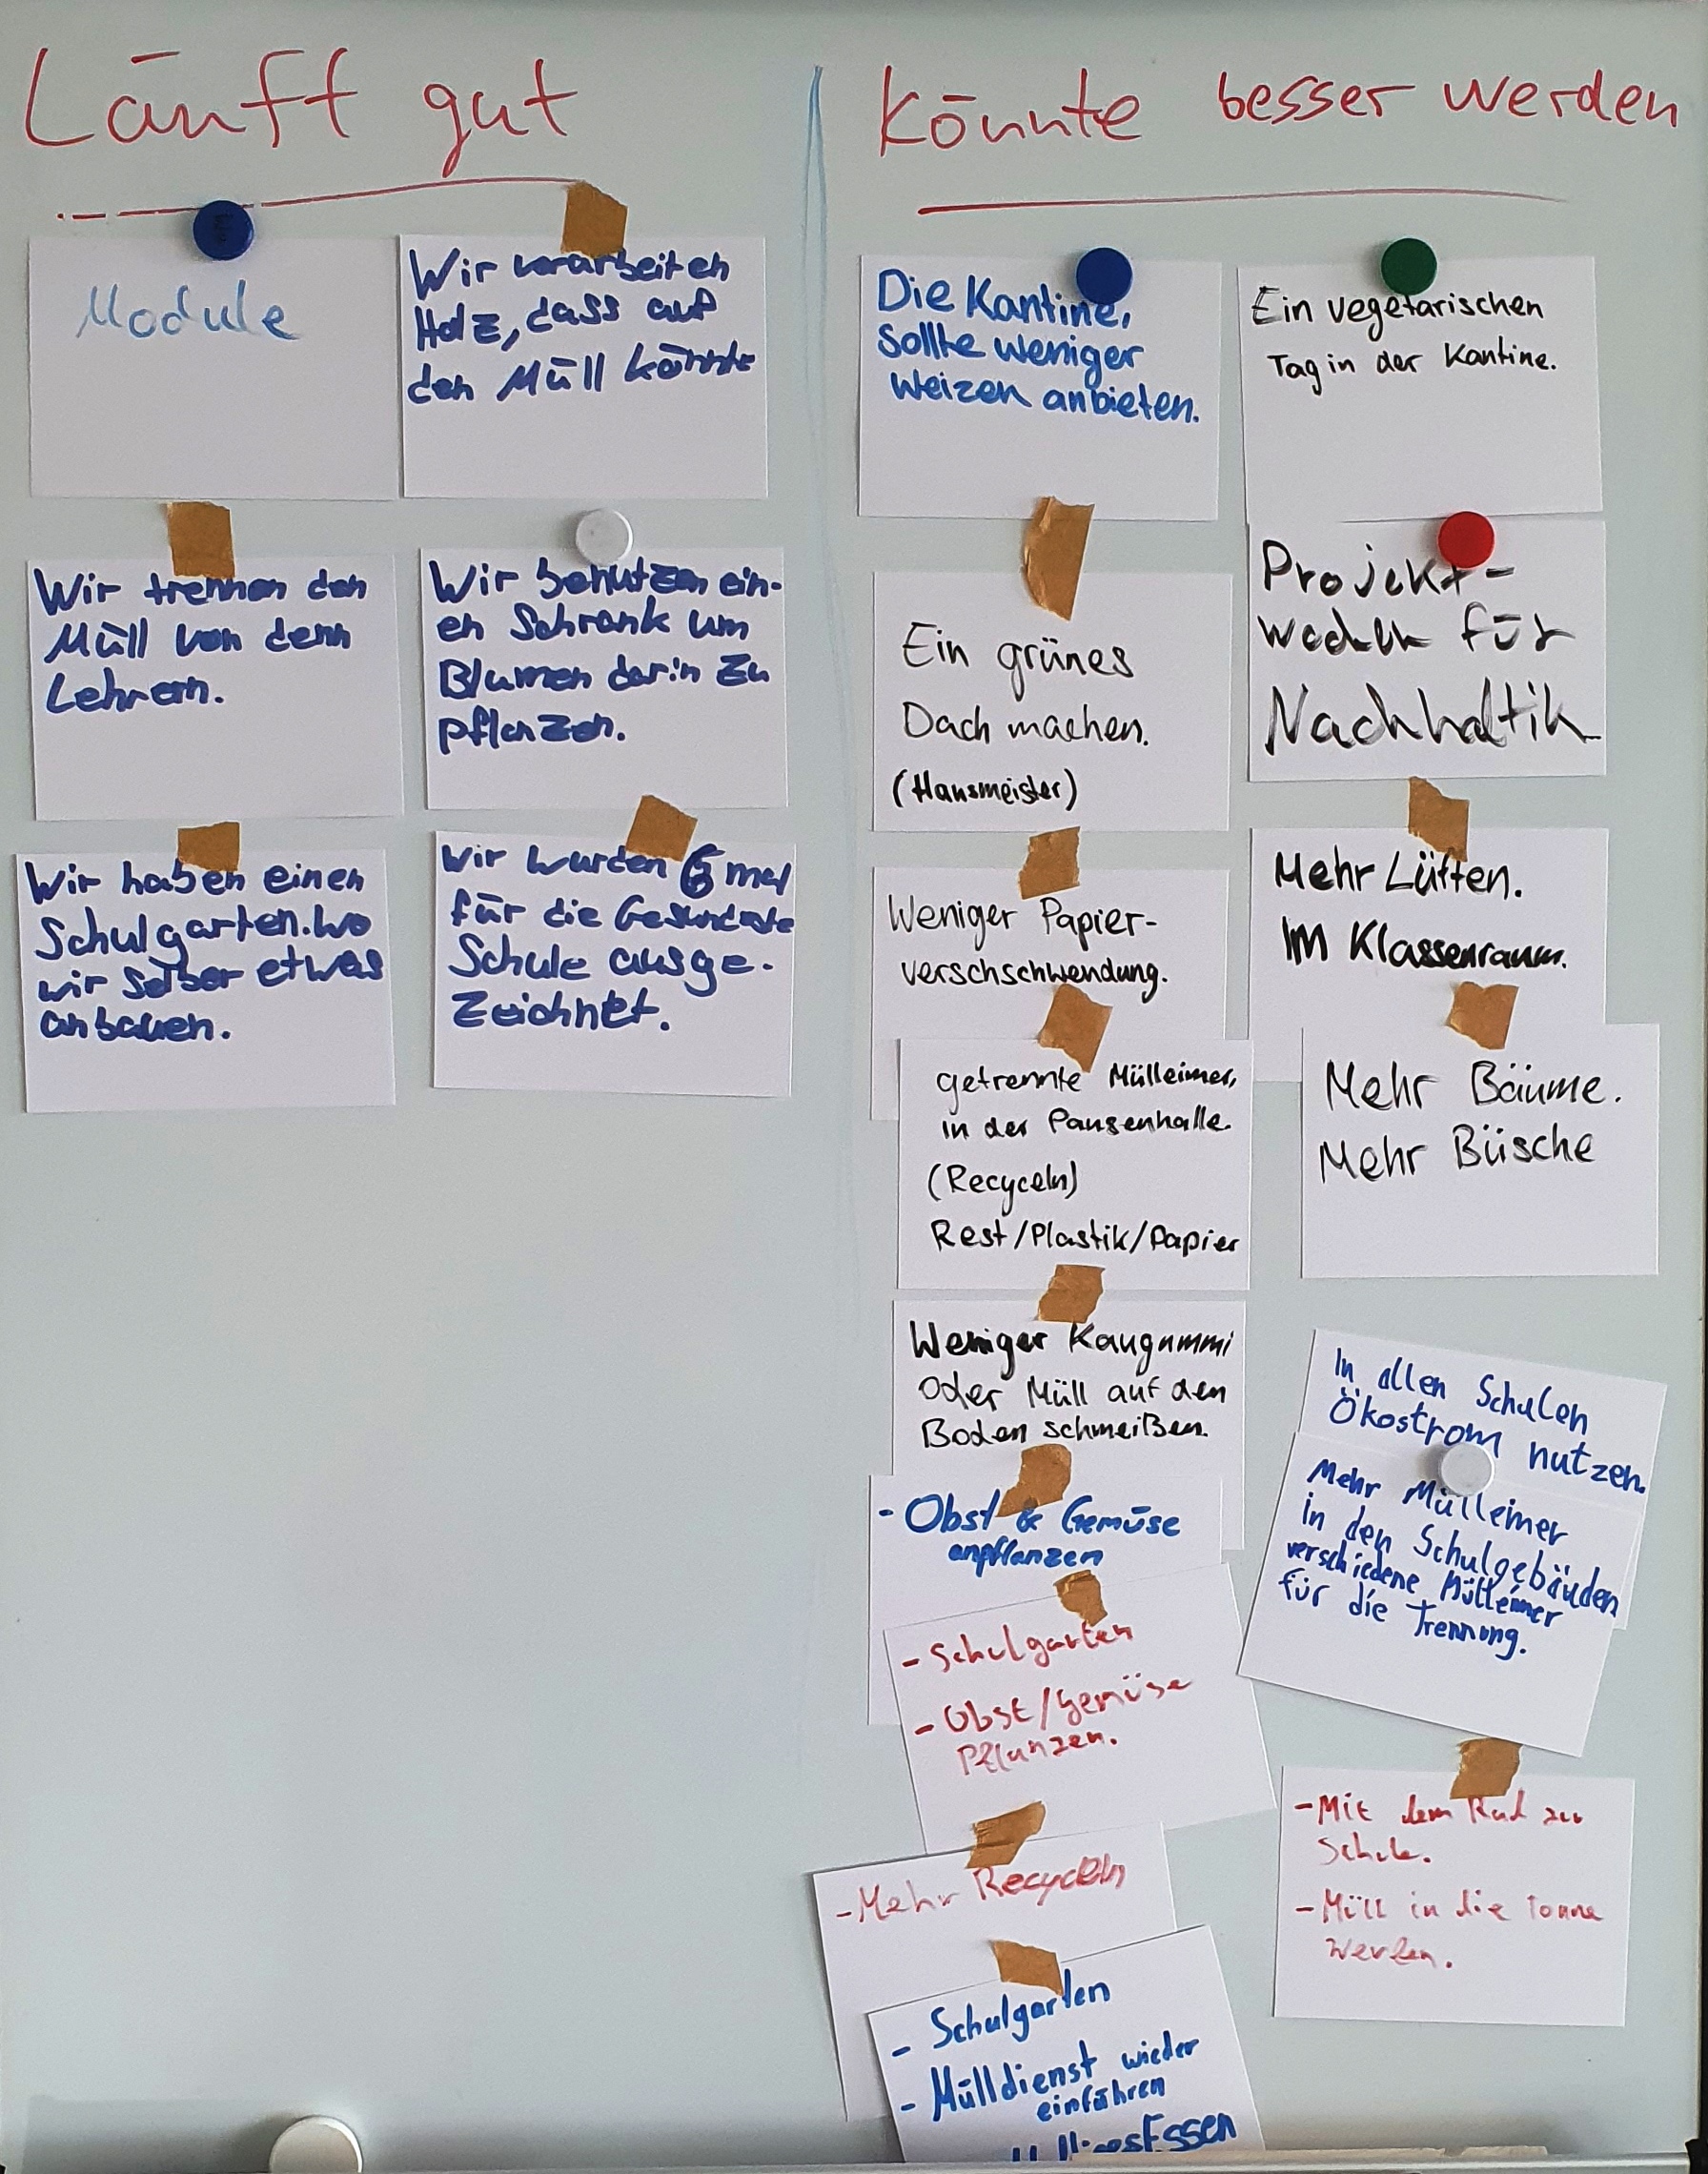 Läuft gut
Module
Wir verarbeiten
Holz, dass auf
den Müll könnte
Wir trennen den
Müll von denn
Lehrern.
Wir benutzen ein-
en Schrank um
Blumen darin zu
pflanzen.
Wir haben einen
Schulgarten. wo
wir selber etwas
anbauen.
Wir wurden 6 mal
für die Gesundeste
Schule ausge-
zeichnet.
Könnte besser werden
Die Kantine,
sollte weniger
Weizen anbieten.
Ein vegetarischen
Tag in der Kantine.
Ein grünes
Dach machen.
(Hausmeister)
Projekt-
wochen für
Nachhaltik
Weniger Papier-
verschschwendung.
Mehr Lüften.
IM Klassenraum.
getrennte Mülleimer,
in der Pausenhalle.
(Recyceln)
Rest/Plastik/Papier
Mehr Bäume.
Mehr Büsche
Weniger Kaugummi
oder Müll auf den
Boden schmeißen.
In allen Schulen
Ökostrom nutzen.
Mehr Mülleimer
in den Schulgebäuden
verschiedene Mülleimer
für die Trennung.
- Obst & Gemüse
anpflanzen
- Schulgarten
- Obst/Gemüse
Pflanzen.
- Mit dem Rad zur
Schule.
- Müll in die Tonne
werfen.
- Mehr Recyceln
- Schulgarten
- Mülldienst wieder
einführen
Essen